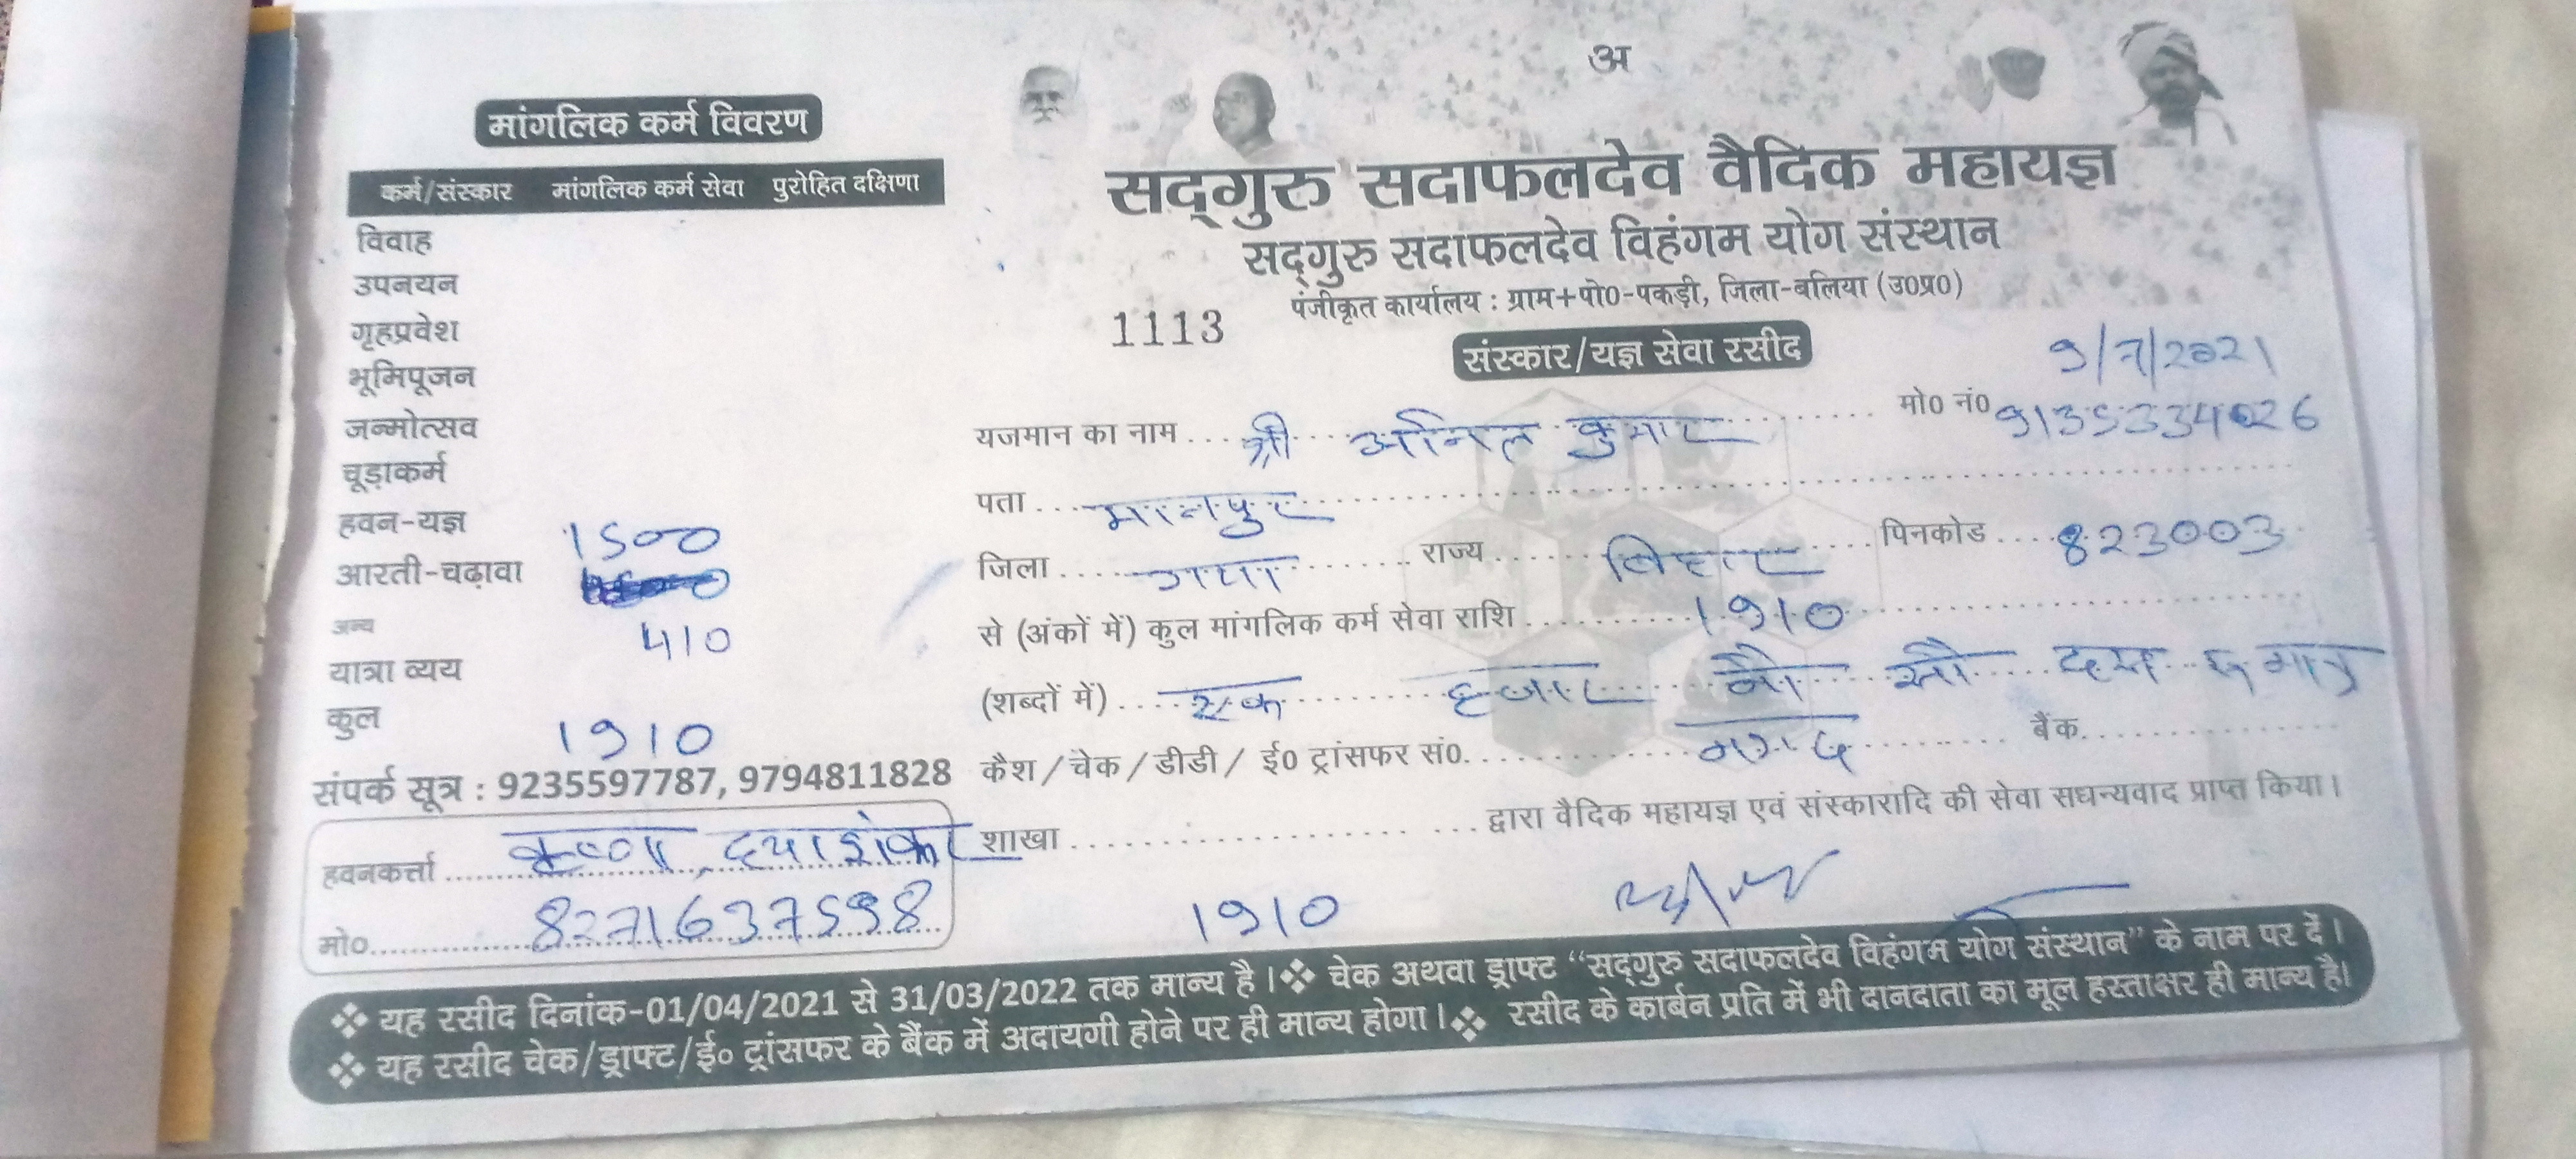 अ
मांगलिक कर्म विवरण
कर्म/संस्कार मांगलिक कर्म सेवा पुरोहित दक्षिणा
विवाह
उपनयन
गृहप्रवेश
भूमिपूजन
जन्मोत्सव
चूड़ाकर्म
हवन-यज्ञ 1500
आरती-चढ़ावा
अन्य 410
यात्रा व्यय
कुल 1910
संपर्क सूत्र : 9235597787, 9794811828
हवनकर्त्ता कृष्णा, दयाशंकर
मो० 8271637598
सद्गुरु सदाफलदेव वैदिक महायज्ञ
सद्गुरु सदाफलदेव विहंगम योग संस्थान
पंजीकृत कार्यालय : ग्राम+पो0-पकड़ी, जिला-बलिया (उ0प्र0)
1113
संस्कार/यज्ञ सेवा रसीद
9/7/2021
यजमान का नाम श्री अनिल कुमार मो0 नं0 9135334026
पता मानपुर
जिला गया राज्य बिहार पिनकोड 823003
से (अंकों में) कुल मांगलिक कर्म सेवा राशि 1910
(शब्दों में) एक हजार नौ सौ दस रू मात्र
कैश/चेक/डीडी/ ई0 ट्रांसफर सं0. नगद बैंक
शाखा द्वारा वैदिक महायज्ञ एवं संस्कारादि की सेवा सधन्यवाद प्राप्त किया।
1910
❖ यह रसीद दिनांक-01/04/2021 से 31/03/2022 तक मान्य है। ❖ चेक अथवा ड्राफ्ट “सद्गुरु सदाफलदेव विहंगम योग संस्थान” के नाम पर दें।
❖ यह रसीद चेक/ड्राफ्ट/ई० ट्रांसफर के बैंक में अदायगी होने पर ही मान्य होगा। ❖ रसीद के कार्बन प्रति में भी दानदाता का मूल हस्ताक्षर ही मान्य है।